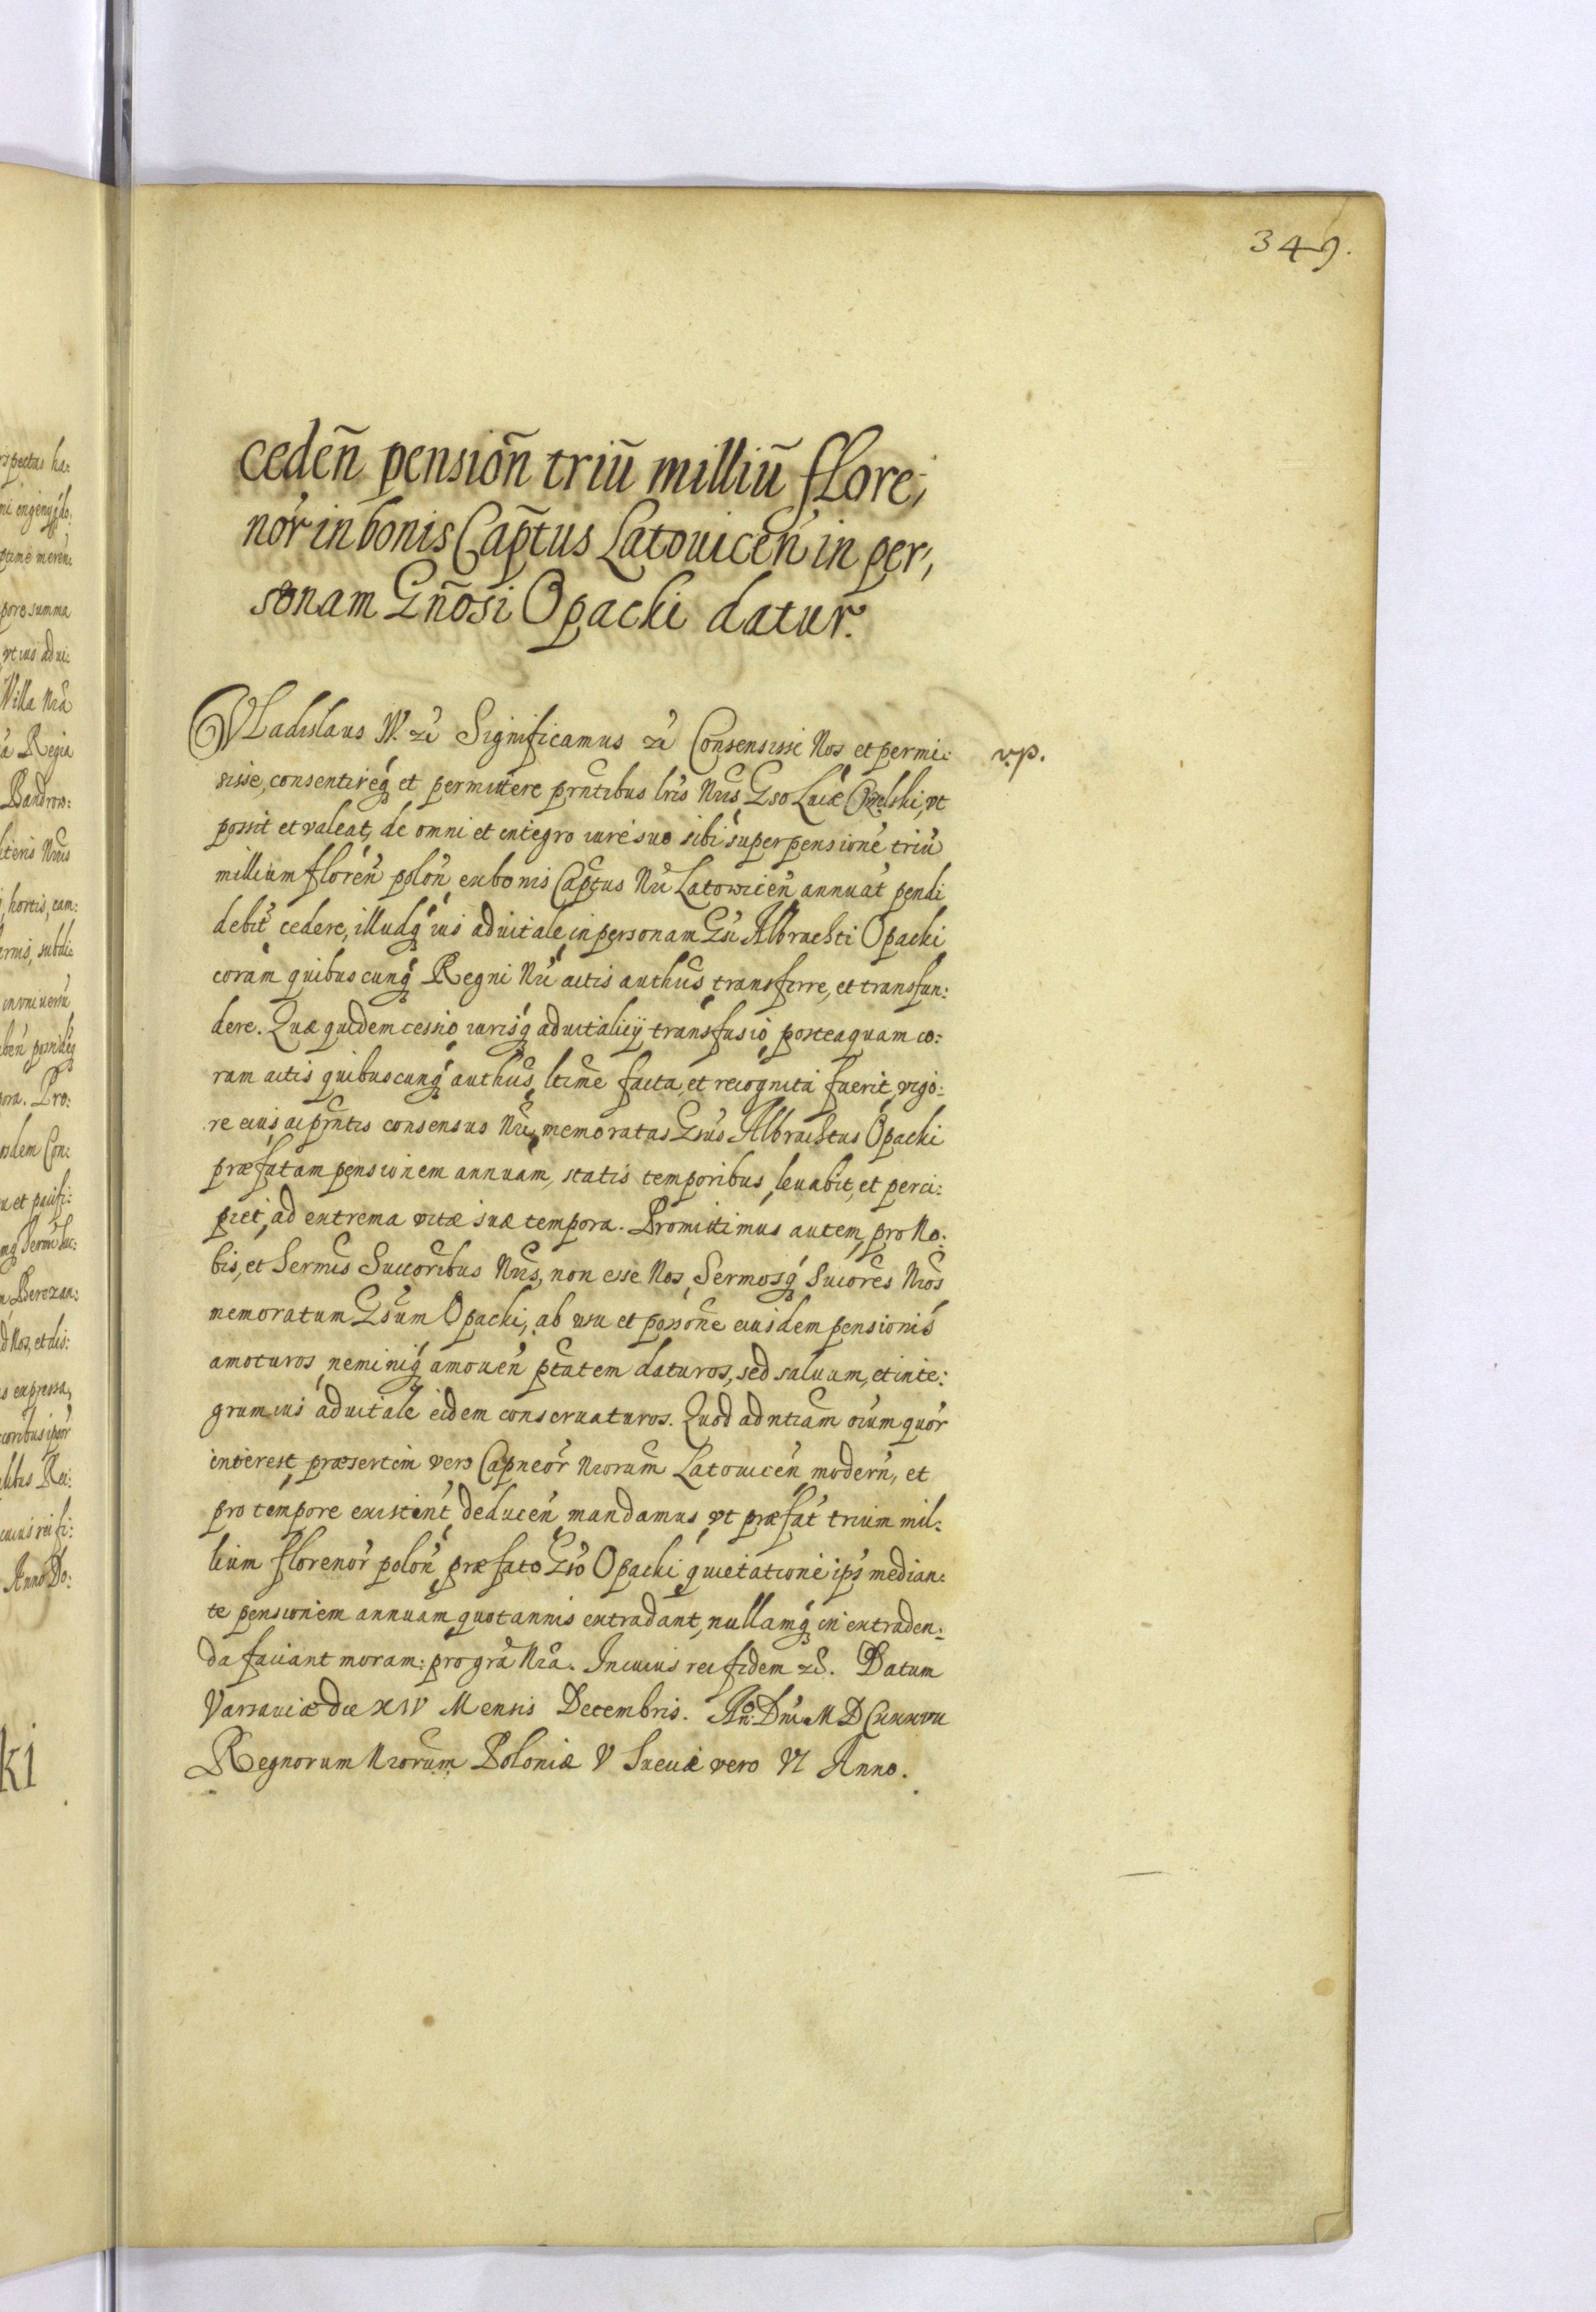 349.
cedeñ pensioñ triũ milliũ flore;
nor in bonis Cap̃tus Latouiceñ in per,
sonam Gñosi Opacki datur.
Vladislaus IV. &c̃ Significamus &c̃ Consensisse Nos et permi:
v.p.
sisse, consentireq́ et permittere prñtibus lris Nris, Gso Lucæ Opalski, vt
possit et valeat, de omni et integro iure suo sibi super pensione triũ
millium floreñ poloñ ex bonis Cap̃tus Nri Latowiceñ annuat̃ pendi
debit̃ cedere, illudq́ ius aduitale in personam Gsi Albrachti Opacki
coram quibuscunq́ Regni Nri actis authcis transferre, et transfun:
dere. Quæ quidem cessio iurisq́ aduitalicij transfusio posteaquam co:
ram actis quibuscunq́ authcis ltime facta et recognita fuerit, vigo:
re eius ac prñtis consensus Nri, memoratus Gsus Albrachtus Opacki
præfatam pensionem annuam, statis temporibus leuabit, et perci:
piet, ad extrema vitæ suæ tempora. Promittimus autem pro No:
bis, et Sermis Succoribus Nris, non esse Nos, Sermosq́ Succores Nros
memoratum Gsum Opacki, ab usu et possone eiusdem pensionis
amoturos, neminiq́ amoueñ ptatem daturos, sed saluum, et inte:
grum ius aduitale eidem conseruaturos. Quod ad ntiam oium quor̃
interest, præsertim vero Capneor̃ Nrorum Latouiceñ moderñ, et
pro tempore existent̃ deduceñ mandamus, vt præfat̃ trium mil:
lium florenor̃ poloñ præfato Gso Opacki quietatione ips̃ median:
te pensionem annuam quotannis extradant, nullamq́ in extraden:
da faciant moram: pro gra Nra. In cuius rei fidem &c. Datum
Varsauiæ die XIV Mensis Decembris. Ao: Dni M D CXXXVII
Regnorum Nrorum Poloniæ V Sueciæ vero VI Anno.